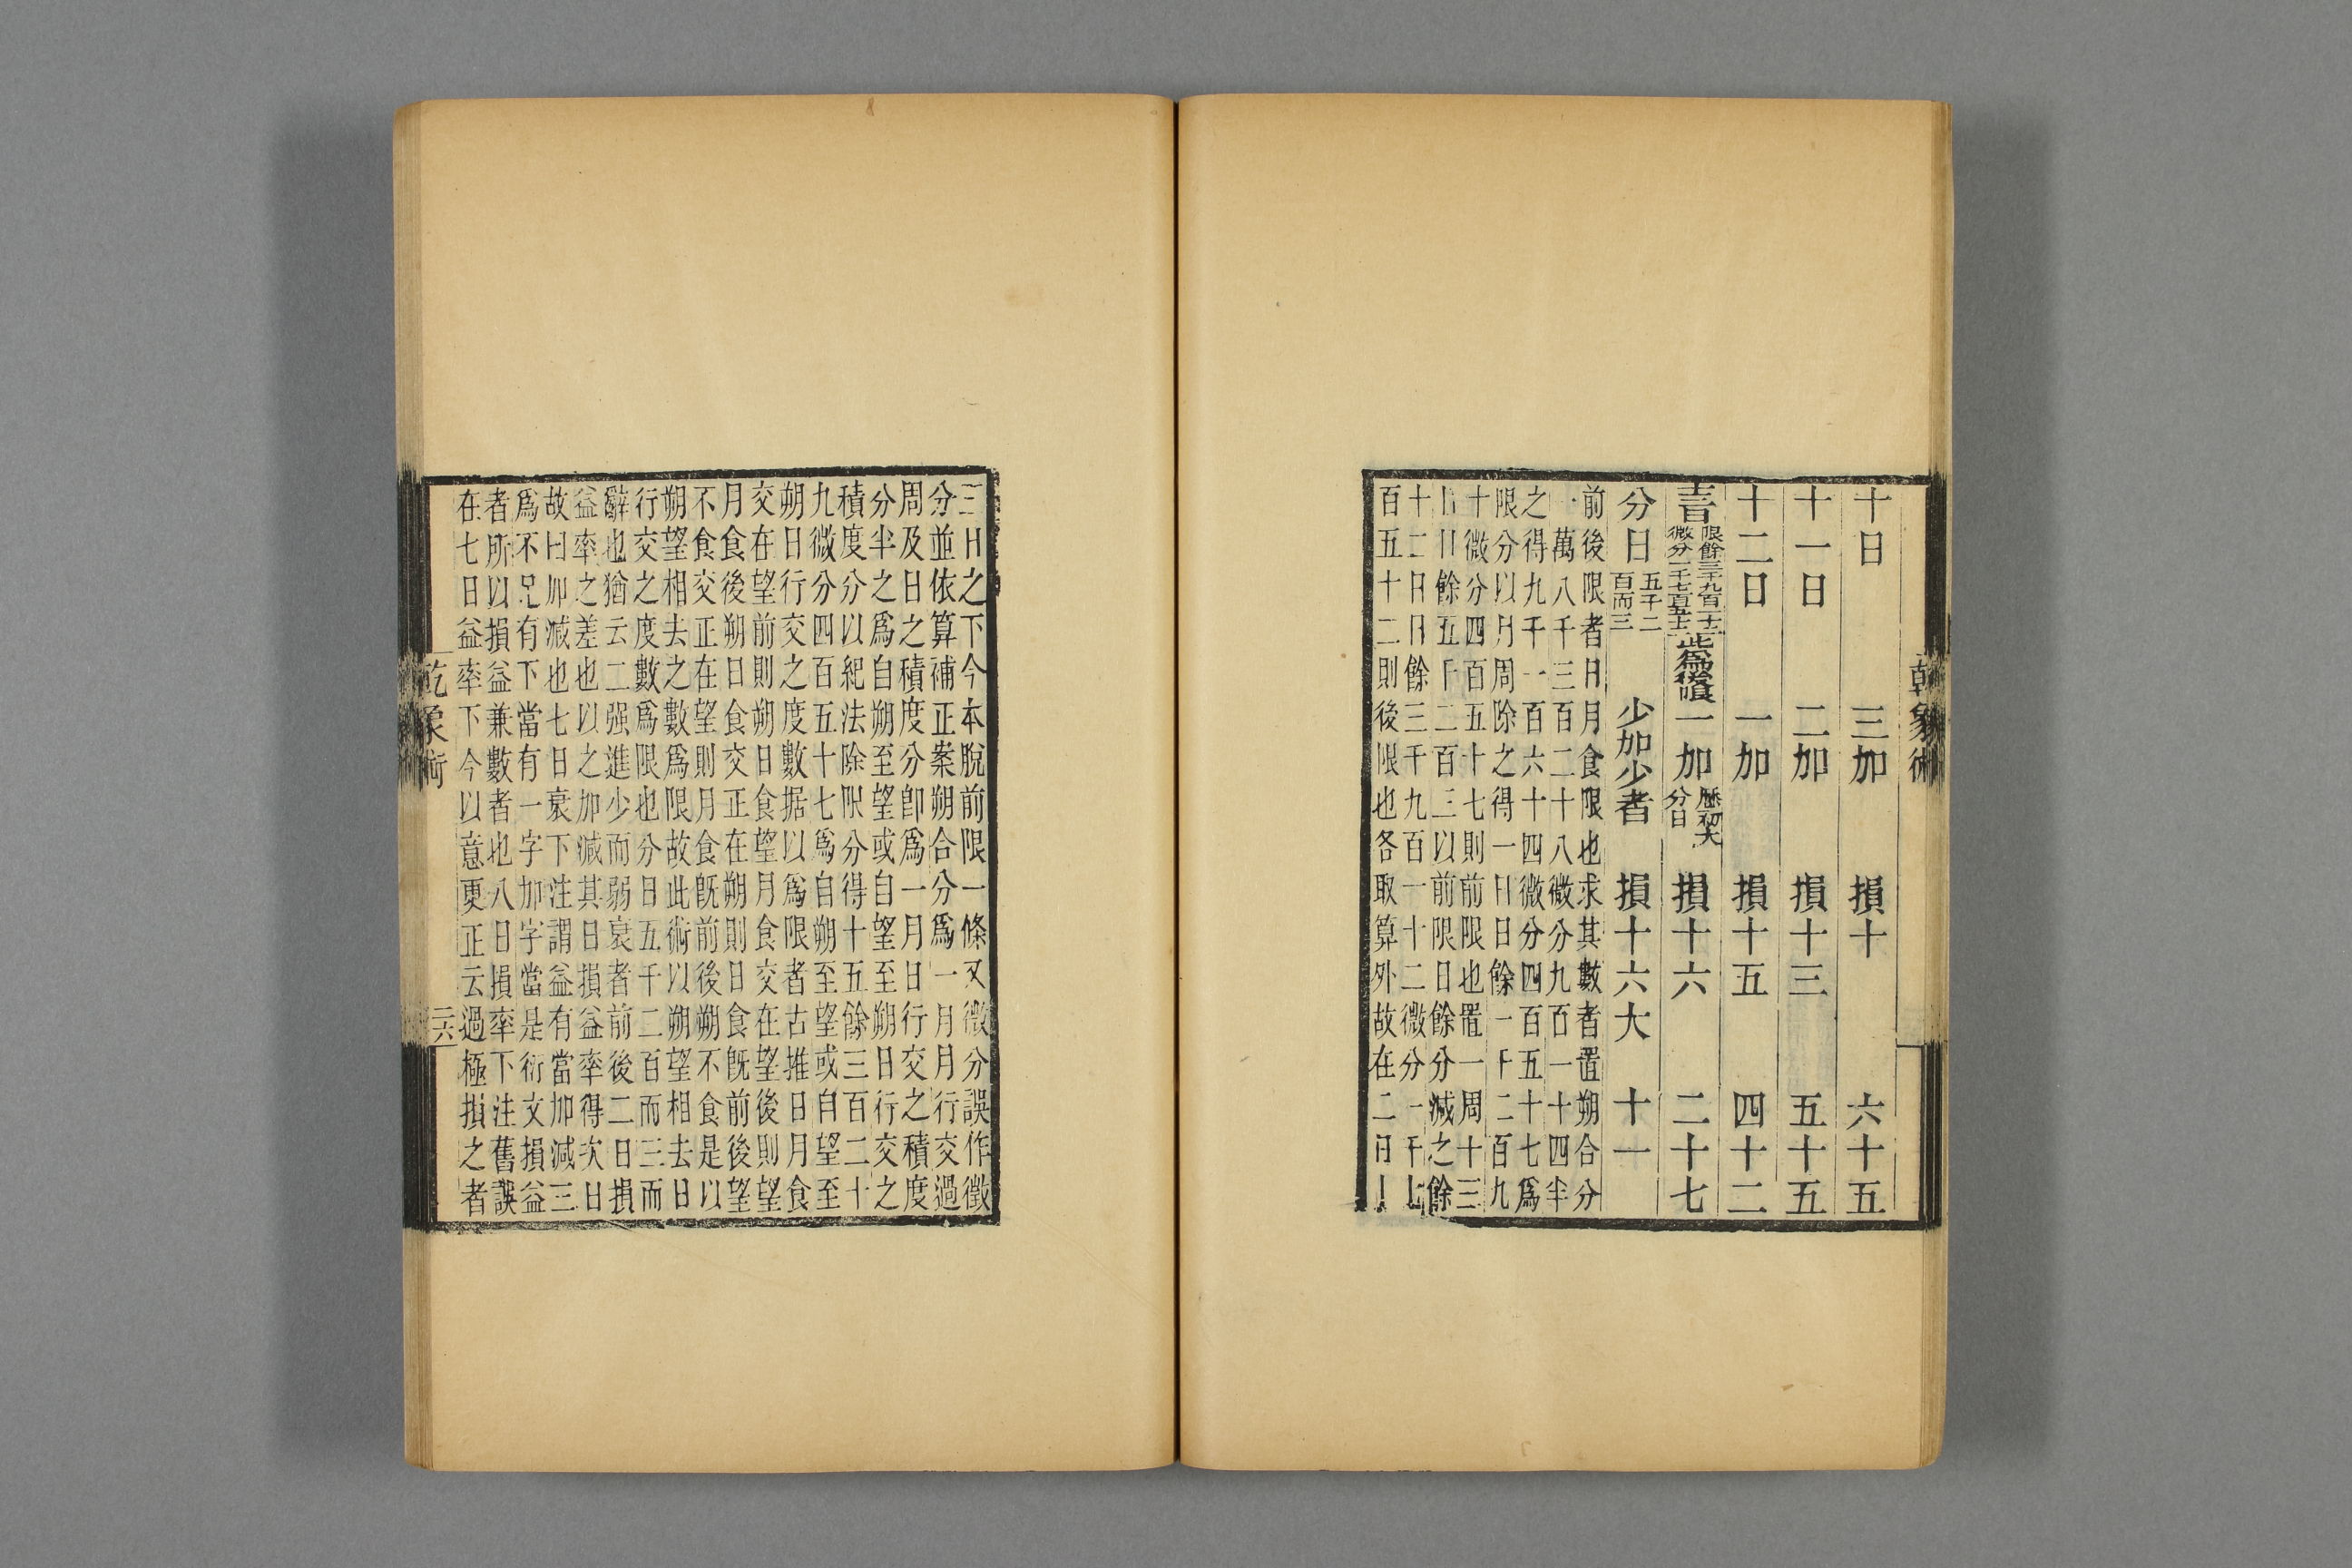 乾象術
十日　三加　損十　六十五
十一日　二加　損十三　五十五
十二日　一加　損十五　四十二
十三日限餘三千九百一十二微分一千七百五十二此爲後限　一加歷初大分日　損十六　二十七
分日五千二百而三　少加少者　損十六大　十一
前後限者日月食限也求其數者置朔合分
一萬八千三百二十八微分九百一十四半
之得九千一百六十四微分四百五十七爲
限分以月周除之得一日日餘一千二百九
十微分四百五十七則前限也置一周十三
日日餘五千二百三以前限日餘分減之餘
十二日日餘三千九百一十二微分一千七
百五十二則後限也各取算外故在二日十
三日之下今本脫前限一條又微分誤作微
分並依算補正案朔合分爲一月月行交過
周及日之積度分卽爲一月日行交之積度
分半之爲自朔至望或自望至朔日行交之
積度分以紀法除限分得十五餘三百二十
九微分四百五十七爲自朔至望或自望至
朔日行交之度數据以爲限者古推日月食
交在望前則朔日食望月食交在望後則望
月食後朔日食交正在朔則日食旣前後望
不食交正在望則月食旣前後朔不食是以
朔望相去之數爲限故此術以朔望相去日
行交之度數爲限也分日五千二百而三而
辭也猶云二强進少而弱衰者前後二日損
益率之差也以之加減其日損益率得次日
故曰加減也七日衰下注謂益有當加減三
爲不足有下當有一字加字當是衍文損益
者所以損益兼數者也八日損率下注舊誤
在七日益率下今以意更正云過極損之者
乾象術
二六